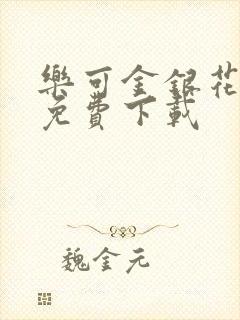 樂可金銀花
免費下載
魏金元